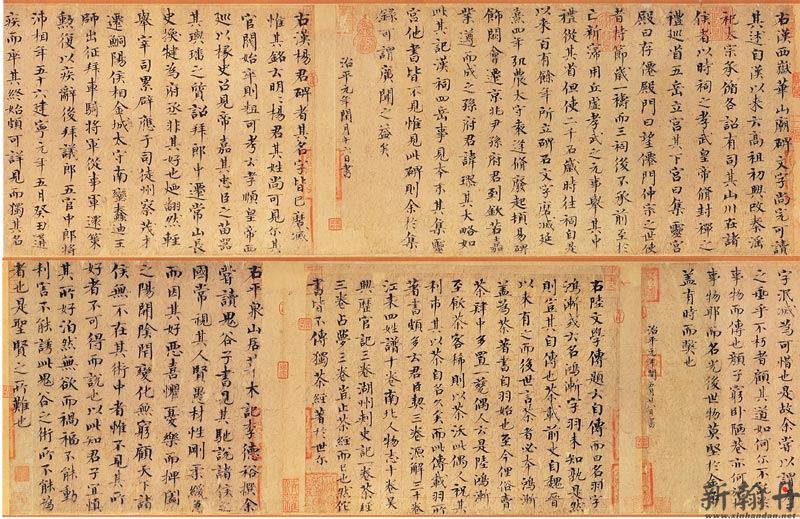 右漢西嶽華山廟碑文字尚完可讀
其述自漢以來云高祖初興改秦淫
祀太宗承循各詔有司其山川在諸
侯者以時祠之孝武皇帝脩封禪之
禮巡省五岳立宮其下宮曰集靈宮
殿曰存僊殿門曰望僊門仲宗之世使
者持節歲一禱而三祠後不承前至於
亡新寖用丘虛孝武之元事舉其中
禮從其省但使二千石歲時往祠自是
以來百有餘年所立碑石文字磨滅延
熹四年弘農太守袁逢脩廢起頓易碑
飾闕會遷京兆尹孫府君到欽若嘉
業遵而成之孫府君諱璆其大略如
此其記漢祠四岳事見本末其集靈
宮他書皆不見惟見此碑則余於集
錄可謂廣聞之益矣
治平元年閏月十六日書
右漢楊君碑者其名字皆已磨滅
惟其銘云明明楊君其姓尚可見尔其
官閥始卒則粗可考云孝順皇帝西
巡以掾史召見帝嘉其忠臣之苗器
其璵璠之質詔拜郎中遷常山長
史換犍為府丞非其好也廼翻然輕
舉宰司累辟應于司徒州察茂才
遷鮦陽侯相金城太守南蠻蠢迪王
師出征拜車騎將軍從事軍還策
勳復以疾辭後拜議郎五官中郎將
沛相年五十六建寧元年五月癸丑遘
疾而卒其終始頗可詳見而獨其名
字泯滅為可惜也是故余嘗以
之垂乎不朽者顧其道如何尔不
事物而傳也顏子窮卧陋巷亦何
事物耶而名光後世物莫堅於
蓋有時而弊也
治平元年閏月日書
右陸文學傳題云自傳而曰名羽字
鴻漸或云名鴻漸字羽未知孰是然
則豈其自傳也茶載前史自魏晉
以來有之而後世言茶者必本鴻漸
蓋為茶著書自羽始也至今俚俗賣
茶肆中多置一甆偶人云是陸鴻漸
至飲茶客稀則以茶沃此偶人祝其
利市其以茶自名久矣而此傳載羽所
著書頗多云君臣契三卷源解三十卷
江表四姓譜十卷南北人物志十卷吳
興歷官記三卷湖州刺史記一卷茶經
三卷占夢三卷豈止茶經而已也然佗
書皆不傳獨茶經著於世尔
右平泉山居草木記李德裕撰余
嘗讀鬼谷子書見其馳說諸侯之
國常視其人賢愚材性剛柔緩急
而因其好惡喜懼憂樂而捭闔
之陽開陰閉變化無窮顧天下諸
侯無不在其術中者惟不見其所
好者不可得而說也以此知君子宜慎
其所好泊然無欲而禍福不能動
利害不能誘此鬼谷之術所不能為
者也是聖賢之所難也
新翰丹
www.xinhandan.net